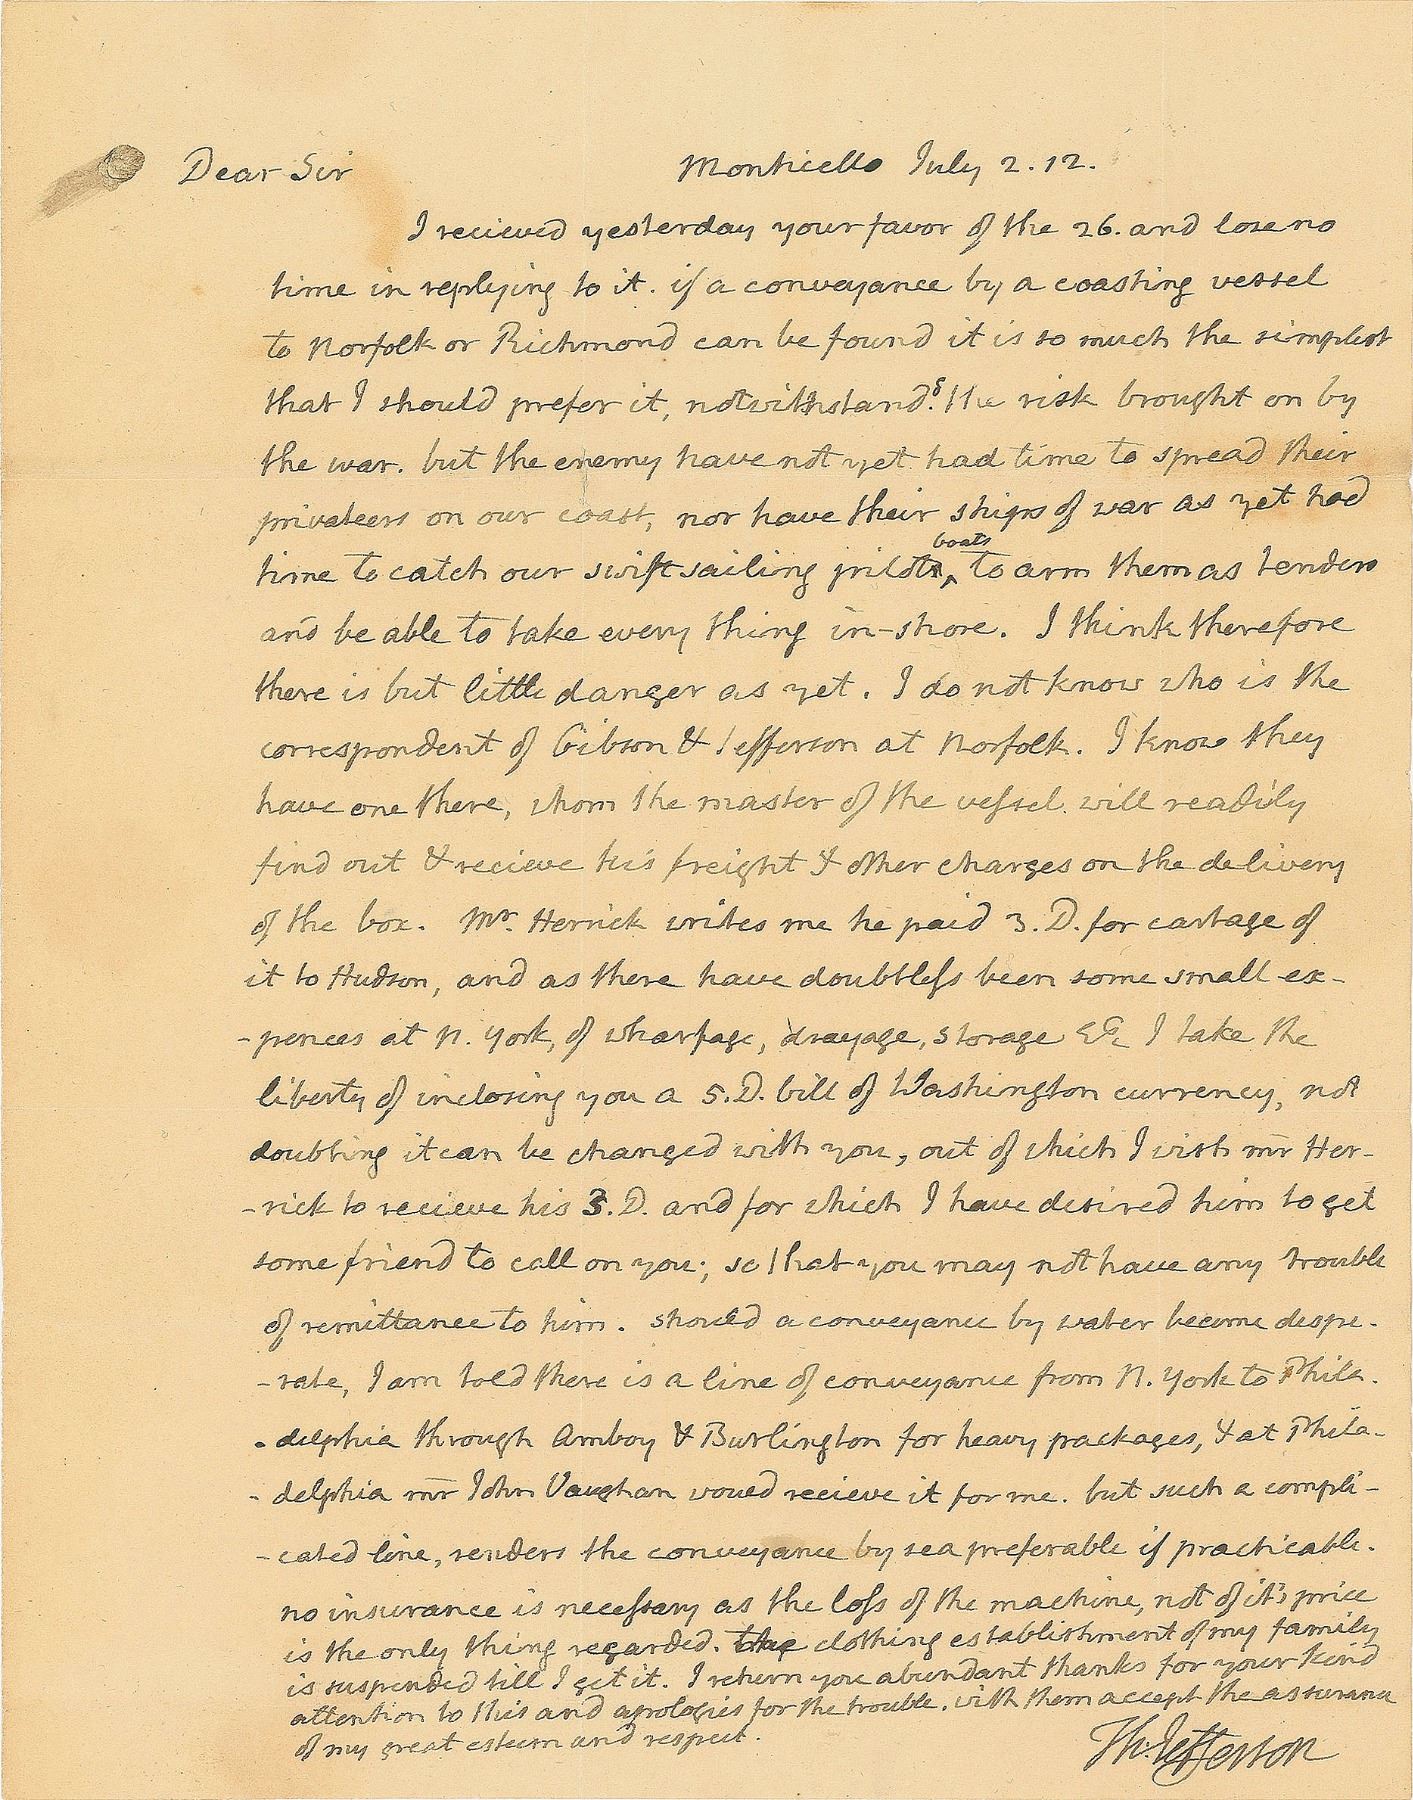 Dear Sir Monticello July 2. 12.
I recieved yesterday your favor of the 26. and lose no
time in replying to it. if a conveyance by a coasting vessel
to Norfolk or Richmond can be found it is so much the simplest
that I should prefer it, notwithstandg. the risk brought on by
the war. but the enemy have not yet had time to spread their
privateers on our coast, nor have their ships of war as yet had
boats
time to catch our swift sailing pilot, to arm them as tenders
and be able to take every thing in-shore. I think therefore
there is but little danger as yet. I do not know who is the
correspondent of Gibson & Jefferson at Norfolk. I know they
have one there, whom the master of the vessel will readily
find out & recieve his freight & other charges on the delivery
of the box. Mr. Herrick writes me he paid 3. D. for cartage of
it to Hudson, and as there have doubtless been some small ex-
-pences at N. York, of wharfage, drayage, storage &c I take the
liberty of inclosing you a 5. D. bill of Washington currency, not
doubting it can be changed with you, out of which I wish mr Her-
-rick to recieve his 3. D. and for which I have desired him to get
some friend to call on you; so that you may not have any trouble
of remittance to him. should a conveyance by water become despe-
-rate, I am told there is a line of conveyance from N. York to Phila-
-delphia through Amboy & Burlington for heavy packages, & at Phila-
-delphia mr John Vaughan would recieve it for me. but such a compli-
-cated line, renders the conveyance by sea preferable if practicable.
no insurance is necessary as the loss of the machine, not of it's price
is the only thing regarded. the clothing establishment of my family
is suspended till I get it. I return you abundant thanks for your kind
attention to this and apologies for the trouble. with them accept the assurance
of my great esteem and respect.
Th: Jefferson